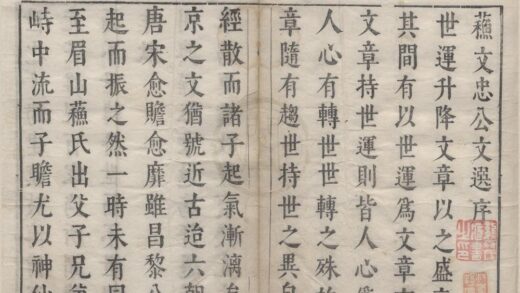 蘓文忠公文選序
世運升降文章以之盛
其間有以世運爲文章
文章持世運則皆人心爲
人心有轉世世轉之殊
章隨有趨世持世之異自
經散而諸子起氣漸漓
京之文猶號近古迨六朝
唐宋愈贍愈靡雖昌黎
起而振之然一時未有
至眉山蘓氏出父子兄弟
峙中流而子瞻尤以神